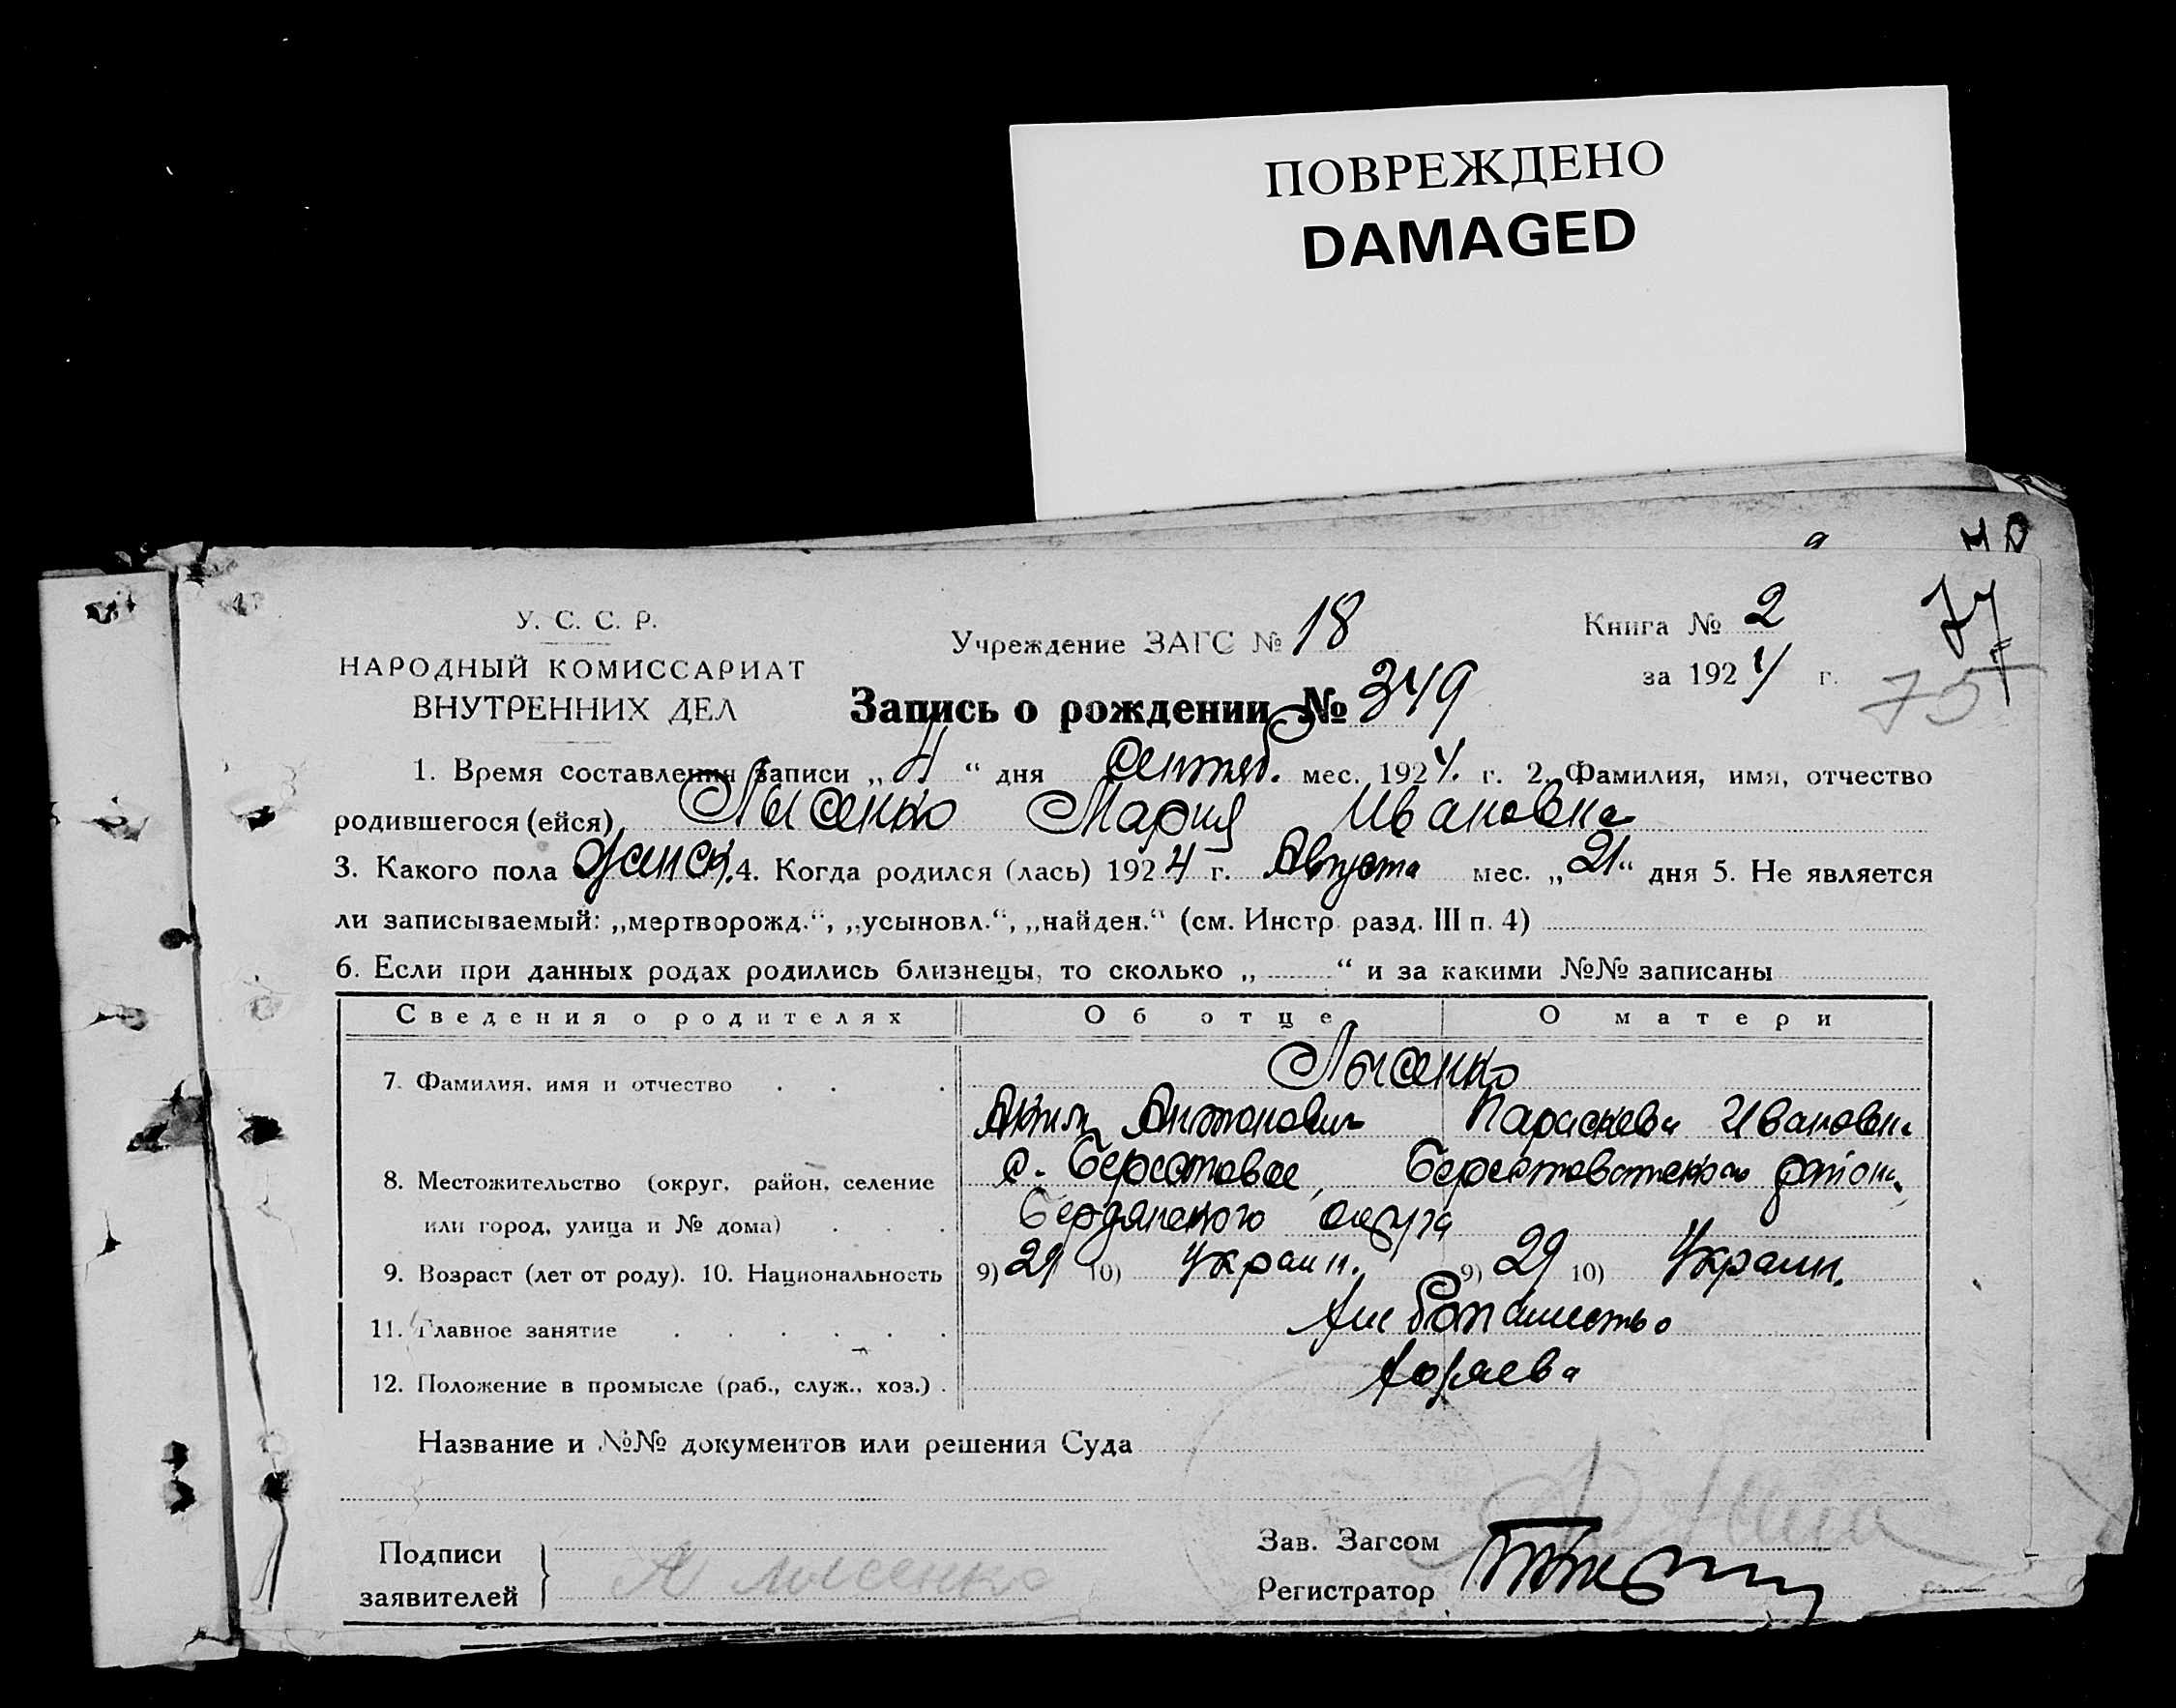 ПОВРЕЖДЕНО
DAMAGED
У. С. С. Р.
НАРОДНЫЙ КОМИССАРИАТ
ВНУТРЕННИХ ДЕЛ
Учреждение ЗАГС № 18
Книга № 2
за 1924 г.
77
75
Запись о рождении № 349
1. Время составления записи „4“ дня Сентяб. мес. 1924. г. 2. Фамилия, имя, отчество
родившегося (ейся) Лысенко Мария Ивановна
3. Какого пола женск. 4. Когда родился (лась) 1924 г. Августа мес. „21“ дня 5. Не является
ли записываемый: „мертворожд.“, „усыновл.“, „найден.“ (см. Инстр. разд. III п. 4)
6. Если при данных родах родились близнецы, то сколько „ “ и за какими №№ записаны
Сведения о родителях Об отце О матери
7. Фамилия, имя и отчество Лысенко
Антонович Параскева Ивановн
8. Местожительство (округ, район, селение с. Берестовое, Берестоватского район
или город, улица и № дома) Бердянского округа
9. Возраст (лет от роду). 10. Национальность 9) 29 10) Украин. 9) 29 10) Украин.
11. Главное занятие Хлебопашество
12. Положение в промысле (раб., служ., хоз.)
Название и №№ документов или решения Суда
Подписи
заявителей
А Лысенко
Зав. Загсом
Регистратор